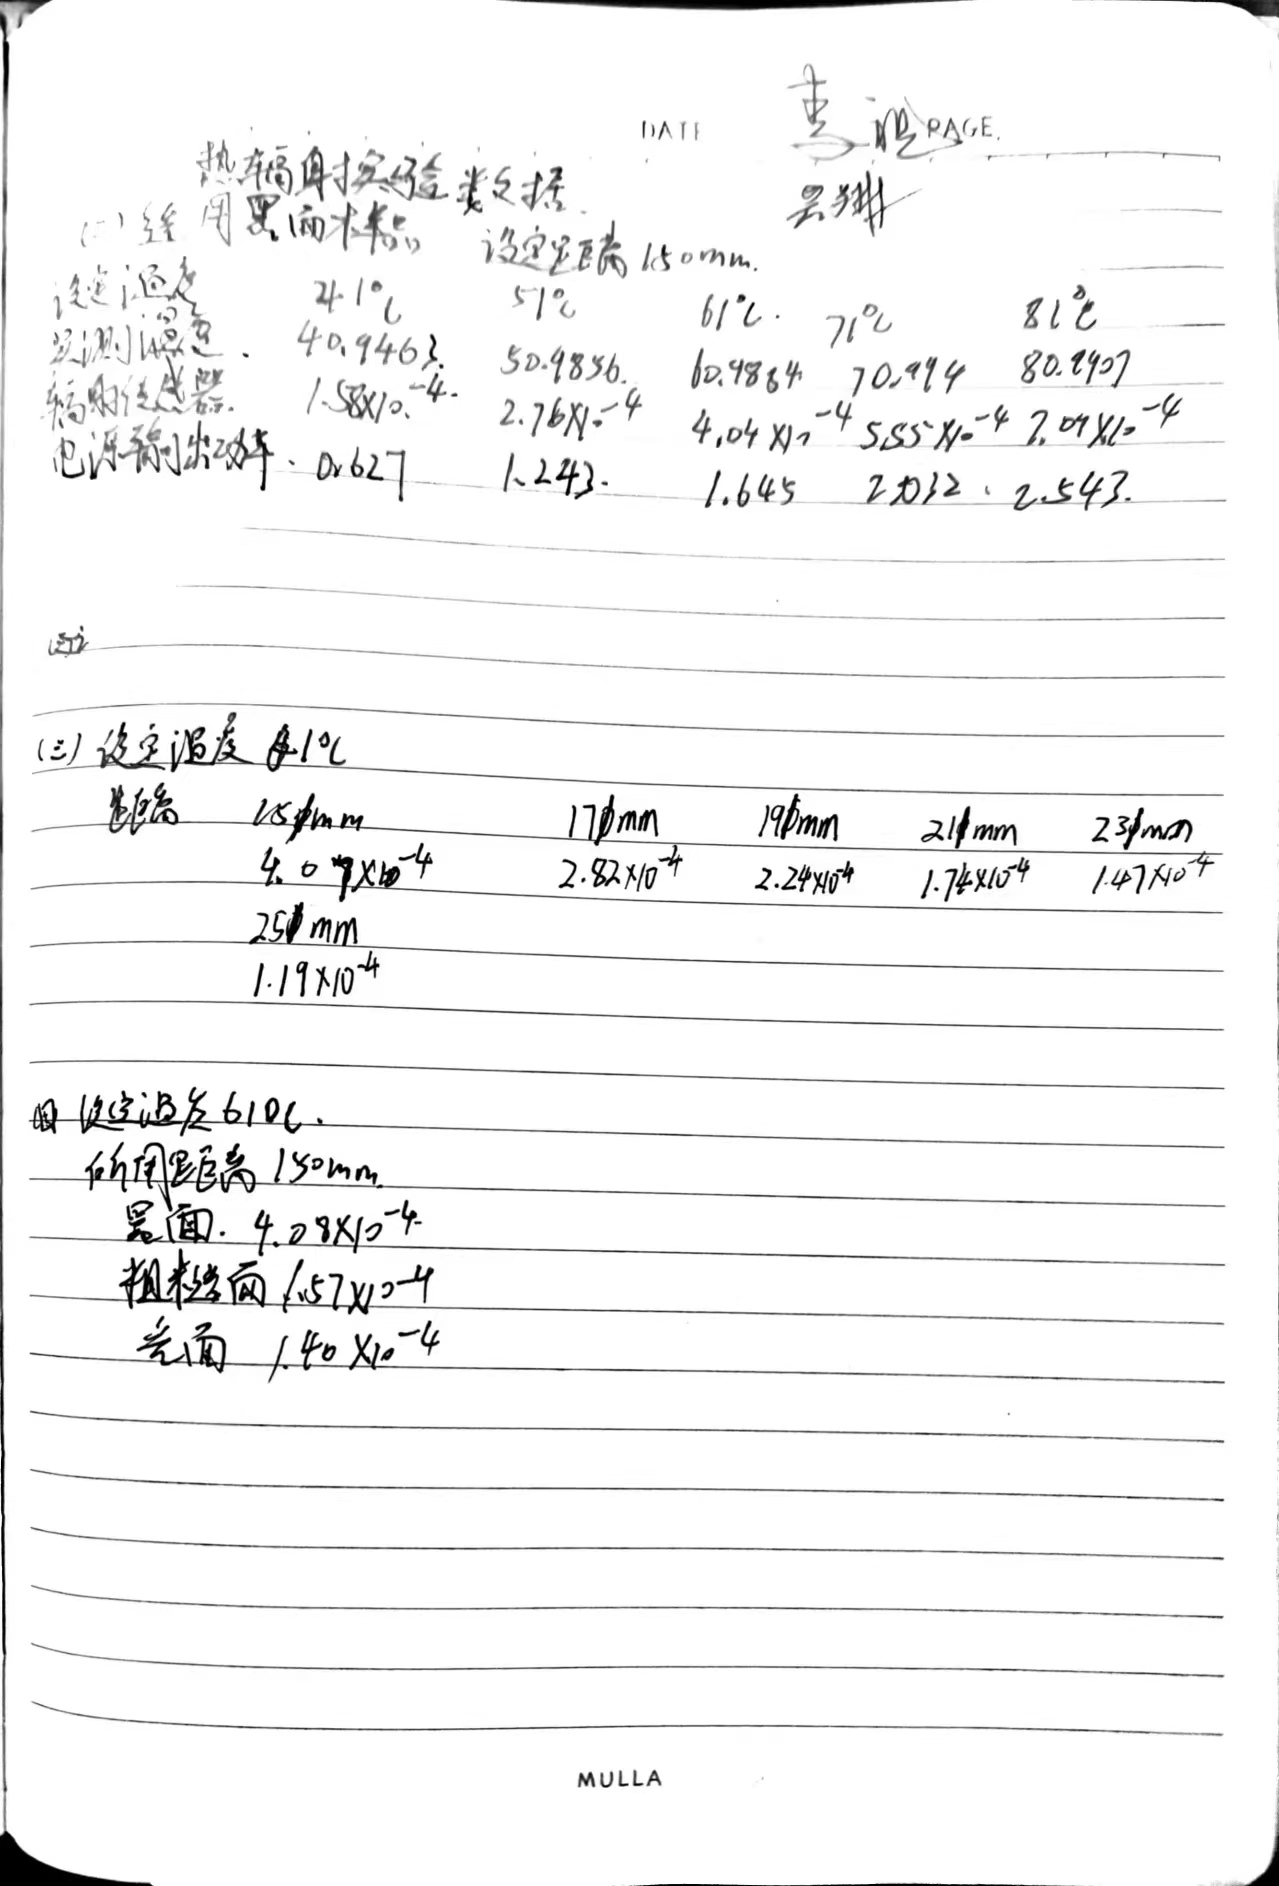 DATE PAGE.
热辐射实验数据
用黑面样品 设定距离 150mm.
设定温度 41℃ 51℃ 61℃. 71℃ 81℃
实测温度. 40.9463. 50.9856. 60.9884 70.994 80.9907
辐射传感器. 1.58×10^-4. 2.76×10^-4 4.04×10^-4 5.55×10^-4 7.09×10^-4
电源输出功率. 0.627 1.243. 1.645 2.032. 2.543.
(三) 设定温度 61℃
距离 150mm 170mm 190mm 210mm 230mm
4.09×10^-4 2.82×10^-4 2.24×10^-4 1.74×10^-4 1.47×10^-4
250mm
1.19×10^-4
四 设定温度 61℃.
所用距离 150mm.
黑面. 4.08×10^-4.
粗糙面 1.57×10^-4
光面 1.40×10^-4
MULLA